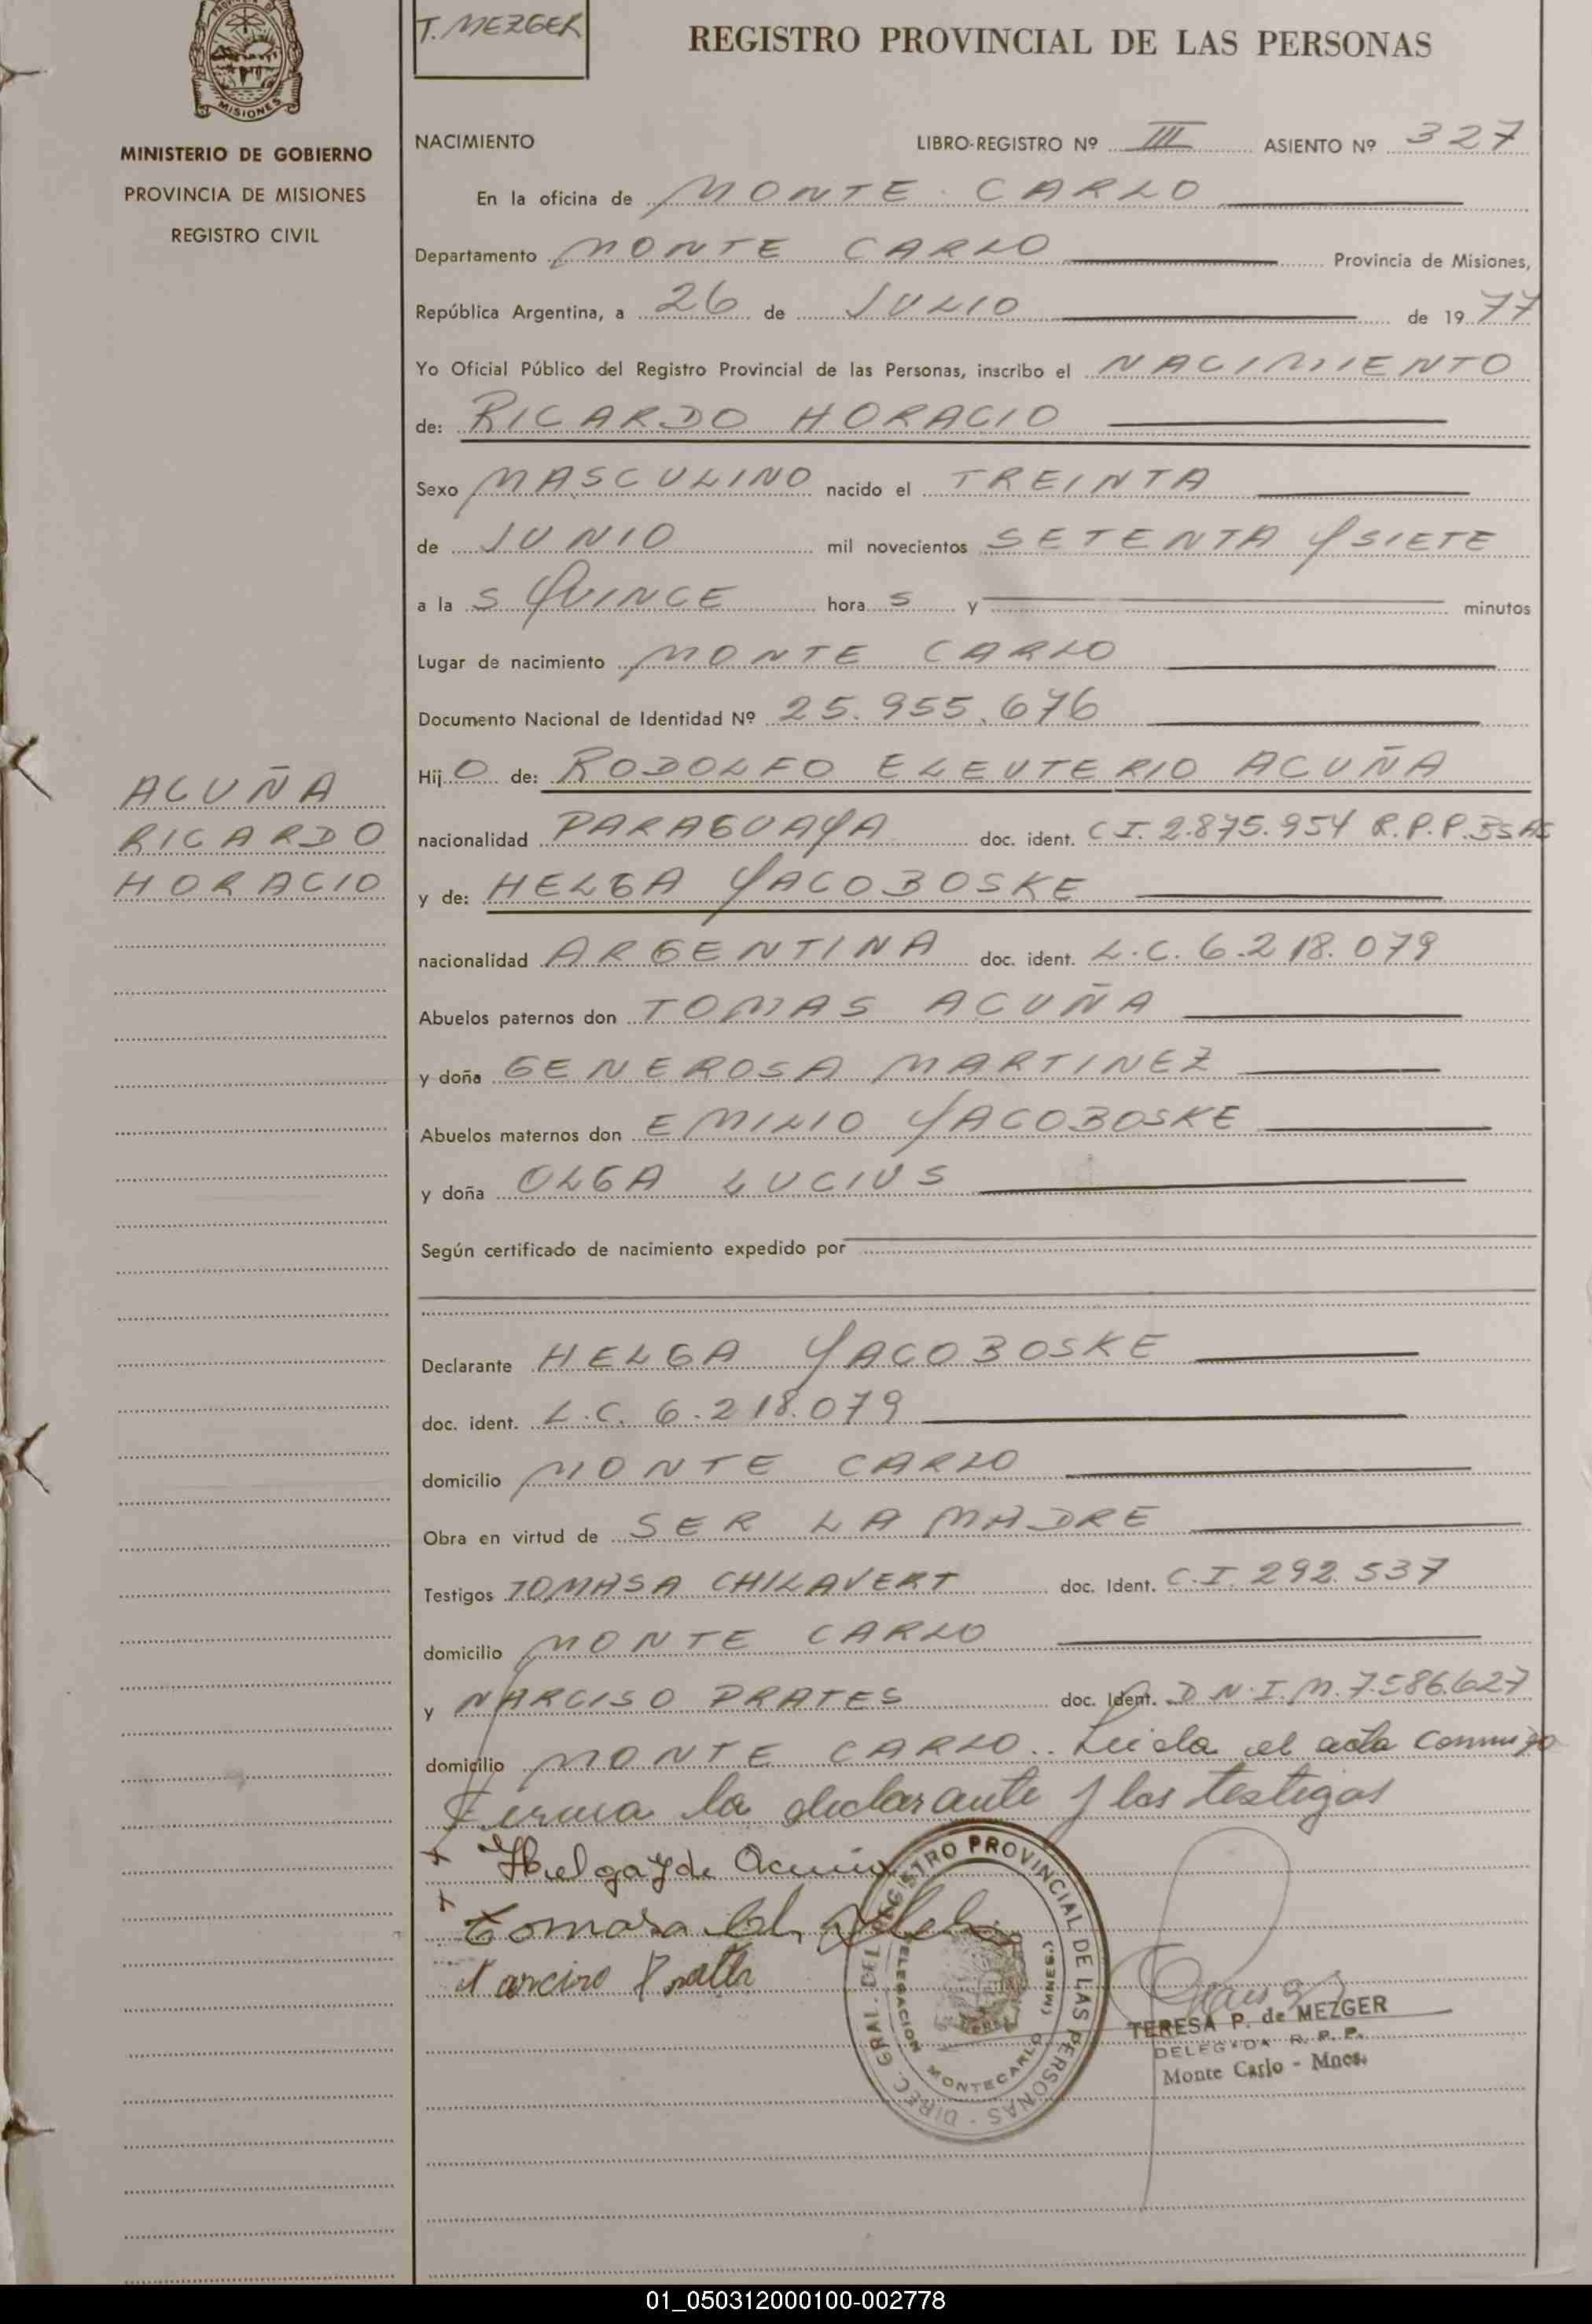 T. MEZGER
REGISTRO PROVINCIAL DE LAS PERSONAS
MISIONES
MINISTERIO DE GOBIERNO
PROVINCIA DE MISIONES
REGISTRO CIVIL
NACIMIENTO LIBRO-REGISTRO Nº III ASIENTO Nº 327
En la oficina de MONTE CARLO
Departamento MONTE CARLO Provincia de Misiones,
República Argentina, a 26 de JULIO de 1977
Yo Oficial Público del Registro Provincial de las Personas, inscribo el NACIMIENTO
de: RICARDO HORACIO
Sexo MASCULINO nacido el TREINTA
de JUNIO mil novecientos SETENTA Y SIETE
a la S QUINCE hora S y minutos
Lugar de nacimiento MONTE CARLO
Documento Nacional de Identidad Nº 25.955.676
Hij O de: RODOLFO ELEUTERIO ACUÑA
ACUÑA
RICARDO
HORACIO
nacionalidad PARAGUAYA doc. ident. C I. 2.875.954 R.P.P. BS AS
y de: HELGA YACOBOSKE
nacionalidad ARGENTINA doc. ident. L.C. 6.218.079
Abuelos paternos don TOMAS ACUÑA
y doña GENEROSA MARTINEZ
Abuelos maternos don EMILIO YACOBOSKE
y doña OLGA LUCIUS
Según certificado de nacimiento expedido por
Declarante HELGA YACOBOSKE
doc. ident. L.C. 6.218.079
domicilio MONTE CARLO
Obra en virtud de SER LA MADRE
Testigos TOMASA CHILAVERT doc. Ident. C.I. 292.537
domicilio MONTE CARLO
y NARCISO PRATES doc. Ident. D N.I. M. 7.586.627
domicilio MONTE CARLO.. Leida el acta conmigo
firma la declarante y los testigos
Helga Y de Acuña
Tomasa
Narciso
DIREC. GRAL. DEL REGISTRO PROVINCIAL DE LAS PERSONAS
DELEGACION MONTECARLO (MNES.)
TERESA P. de MEZGER
DELEGADA R. P. P.
Monte Carlo - Mnes.
01_050312000100-002778